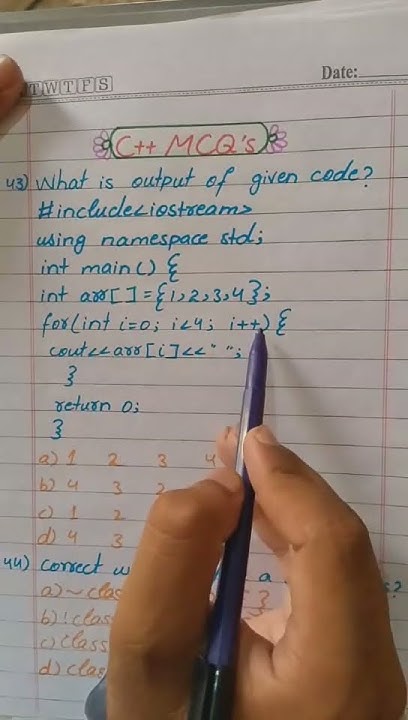 T W T F S
Date:
C++ MCQ's
43) What is output of given code?
#include<iostream>
using namespace std;
int main() {
int arr[]={1,2,3,4};
for(int i=0; i<4; i++) {
cout<<arr[i]<<" ";
}
return 0;
}
a) 1 2 3 4
b) 4 3 2
c) 1 2
d) 4 3
44) correct a ?
a) ~
b) !
c) class
d)